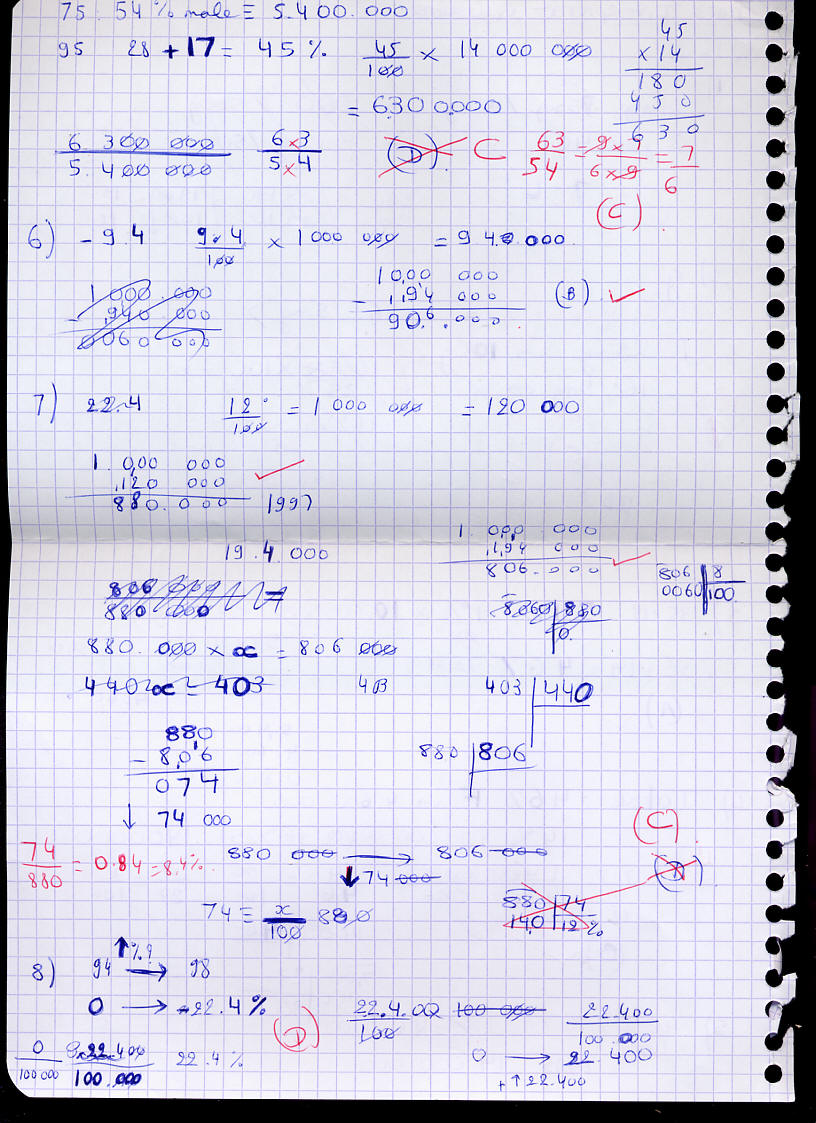 75. 54% male = 5.400.000
95 28 + 17 = 45% 45/100 × 14 000 000
45
× 14
180
450
630
= 6300.000
6 300 000 / 5.400 000
6×3 / 5×4
(D) C 63/54 = 9×7 / 6×9 = 7/6
(C)
6) - 9.4 9.4/100 × 1000 000 = 940.000
1 000 000
- ,940 000
0060 000
10,00 000
- 1,94 000
906.000
(B)
7) 22.4 12/100 = 1 000 000 = 120 000
1. 0,00 000
,120 000
880.000 1997
19.4.000
1. 000.000
1,94 000
806.000
806 | 8
0060 | 100
806 000
880 000 =
8060 | 880
0.
880.000 × x = 806 000
440x = 403 4B 403 | 440
880
- 8,06
074
880 | 806
↓ 74 000
74/880 = 0.84 = 8,4%
880 000 → 806 000
↓ 74 000
(C)
(D)
74 = x/100 880
880 | 74
140 | 12 %
8) 94 → 98
↑%?
0 → -22.4%
(D)
22.4.00/100 100 000
22.400/100.000
0/100 000 22.400/100.000 22.4%
0 → 22.400
+ ↑22.400